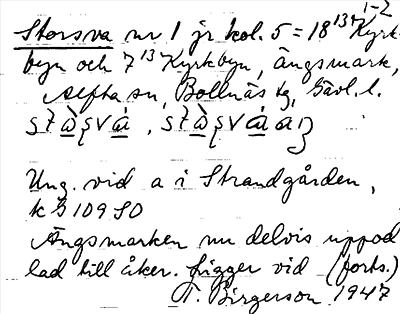 1-2
Storsva nr 1 jr kol. 5 = 18 13+ Kyrk-
byn och 7 13 Kyrkbyn, ängsmark,
Alfta sn, Bollnäs tg, Gävl. l.
Ung. vid a i Strandgården,
k B 109 SO
Ängsmarken nu delvis uppod
lad till åker. Ligger vid (forts.)
T. Birgerson 1947